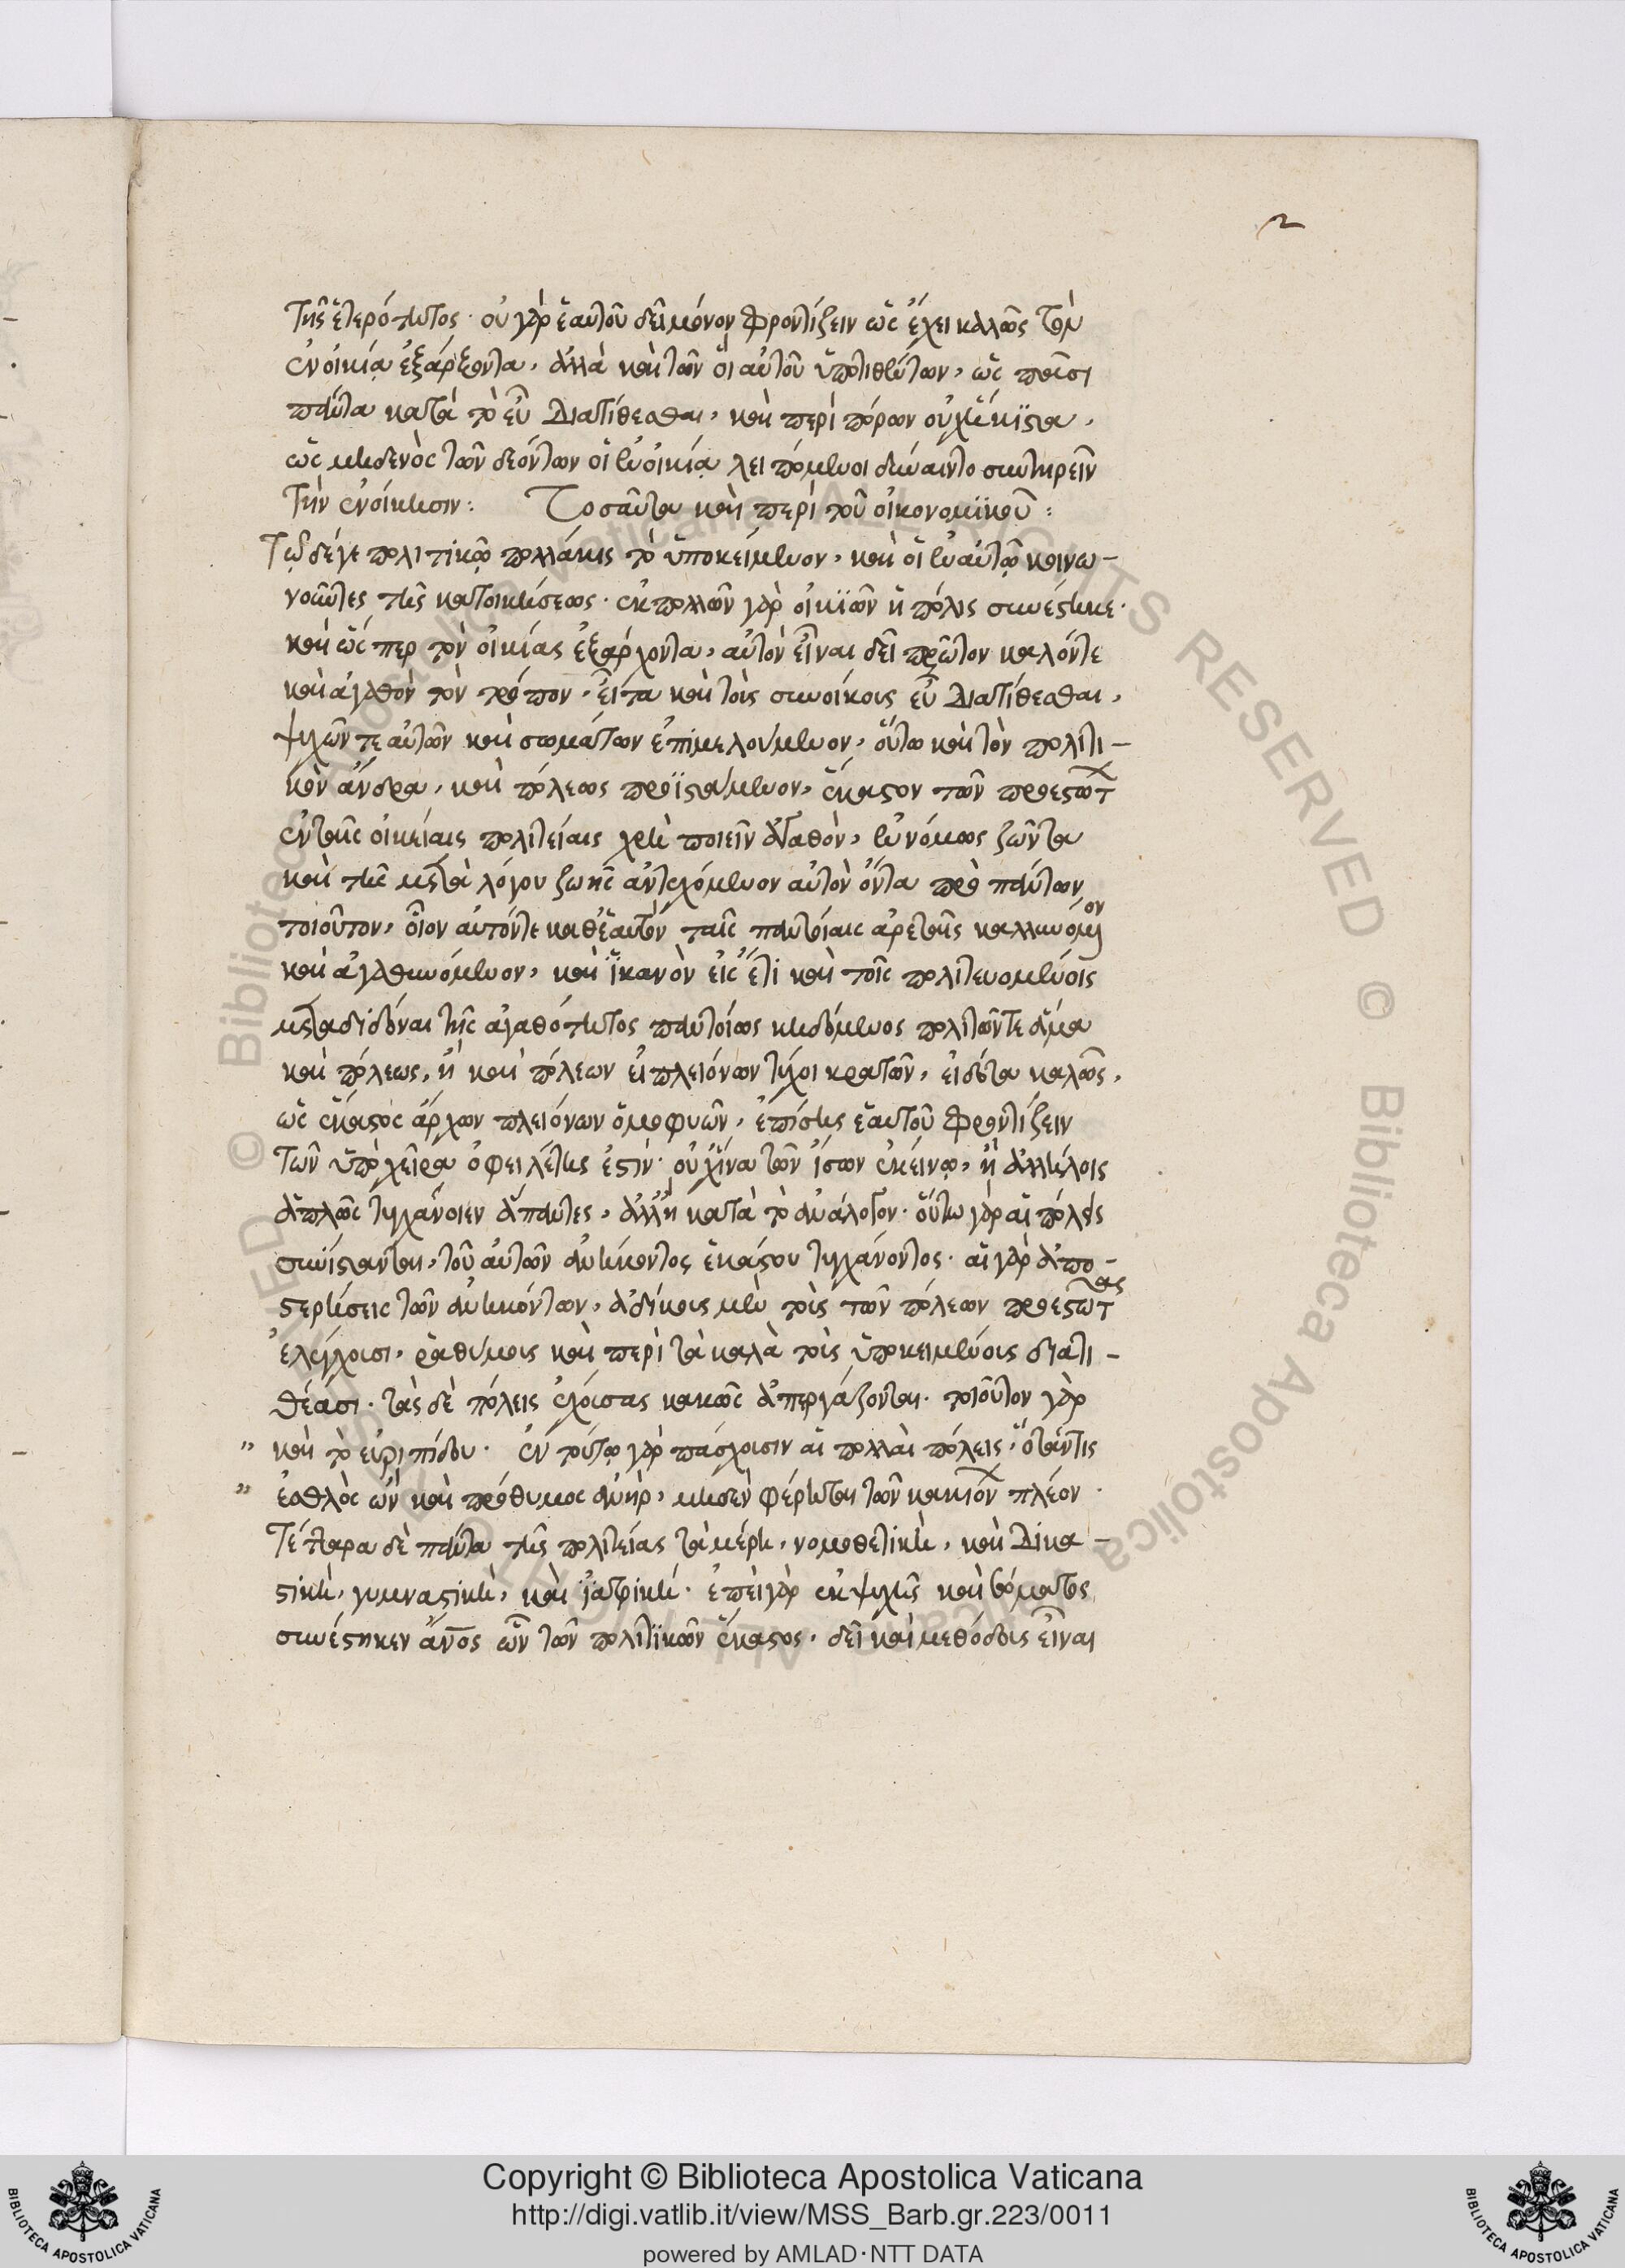 2
τῆς ἑτερότητος· οὐ γὰρ ἑαυτοῦ δεῖ μόνον φροντίζειν ὡς ἔχει καλῶς τὸν
ἐν οἰκίᾳ ἐξάρξοντα, ἀλλὰ καὶ τῶν οἳ αὐτοῦ ὑποτιθέντων, ὡς
πάντα κατὰ τὸ εὖ διατίθεσθαι, καὶ περὶ πόρων οὐχ ἥκιστα,
ὡς μηδενὸς τῶν δεόντων οἱ ἐν οἰκίᾳ λειπόμενοι δύναιντο συντηρεῖν
τὴν ἐνοίκησιν: Τοσαῦτα καὶ περὶ τοῦ οἰκονομικοῦ:
Τῷ δέ γε πολιτικῷ πολλάκις τὸ ὑποκείμενον, καὶ οἱ ἐν αὐτῷ κοινω-
νοῦντες τῆς κατοικήσεως· ἐκ πολλῶν γὰρ οἰκιῶν ἡ πόλις συνέστηκε·
καὶ ὥς περ τὸν οἰκίας ἐξάρχοντα, αὐτὸν εἶναι δεῖ πρῶτον καλόν τε
καὶ ἀγαθὸν τὸν τρόπον, εἶτα καὶ τοῖς συνοίκοις εὖ διατίθεσθαι,
ψυχῶν τε αὐτῶν καὶ σωμάτων ἐπιμελούμενον, οὕτω καὶ τὸν πολιτι-
κὸν ἄνδρα, καὶ πόλεως προϊστάμενον, ἕκαστον τῶν προεστώτ
ἐν ταῖς οἰκείαις πολιτείαις χρὴ ποιεῖν ἀγαθὸν, ἐννόμως ζῶντα
καὶ τῆς μετὰ λόγου ζωῆς ἀντεχόμενον αὐτὸν ὄντα πρὸ πάντων
τοιοῦτον, οἷον αὐτόν τε καθ' ἑαυτὸν ταῖς παντοίαις ἀρεταῖς καλλυνόμενον
καὶ ἀγαθυνόμενον, καὶ ἱκανὸν εἰς ἔτι καὶ τοῖς πολιτευομένοις
μεταδιδόναι τῆς ἀγαθότητος παντοίως κηδόμενος πολιτῶν τε ἅμα
καὶ πόλεως, ἢ καὶ πόλεων εἰ πλειόνων τύχοι κρατῶν, εἰδότα καλῶς,
ὡς ἕκαστος ἄρχων πλειόνων ὁμοφυῶν, ἐπίσης ἑαυτοῦ φροντίζειν
τῶν ὑπὸ χεῖρα ὀφειλέτης ἐστίν· οὐχ ἵνα τῶν ἴσων ἐκείνῳ, ἢ ἀλλήλοις
ἁπλῶς τυγχάνοιεν ἅπαντες, ἀλλ' ἢ κατὰ τὸ ἀνάλογον· οὕτω γὰρ αἱ πόλεις
συνίστανται, τοῦ αὐτῶν ἀνήκοντος ἑκάστου τυγχάνοντος· αἱ γὰρ ἀπο-
στερήσεις τῶν ἀνηκόντων, ἀδίκους μὲν τοὺς τῶν πόλεων προεστῶτας
ἐλέγχουσι, ῥαθύμους καὶ περὶ τὰ καλὰ τοὺς ὑποκειμένους διατι-
θέασι· τὰς δὲ πόλεις ἐχούσας κακῶς ἀπεργάζονται· τοιοῦτον γὰρ
" καὶ τὸ εὐριπίδου· ἐν τούτῳ γὰρ πάσχουσιν αἱ πολλαὶ πόλεις, ὅταν τις
" ἐσθλὸς ὢν καὶ πρόθυμος ἀνὴρ, μηδὲν φέρηται τῶν κακιόν πλέον·
Τέτταρα δὲ πάντα τῆς πολιτείας τὰ μέρη, νομοθετικὴ, καὶ δικα-
στικὴ, γυμναστικὴ, καὶ ἰατρική· ἐπεὶ γὰρ ἐκ ψυχῆς καὶ σώματος
συνέστηκεν ἄνος ὢν τῶν πολιτικῶν ἕκαστος, δεῖ καὶ μεθόδους εἶναι
Copyright © Biblioteca Apostolica Vaticana
http://digi.vatlib.it/view/MSS_Barb.gr.223/0011
powered by AMLAD·NTT DATA